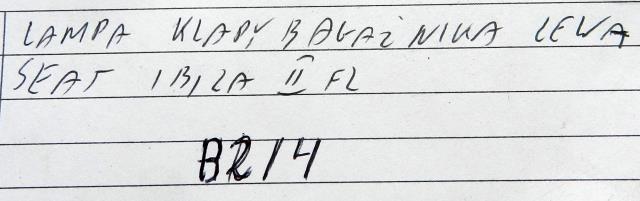 LAMPA KLAPY BAGAŻNIKA LEWA
SEAT IBIZA II FL
BR14